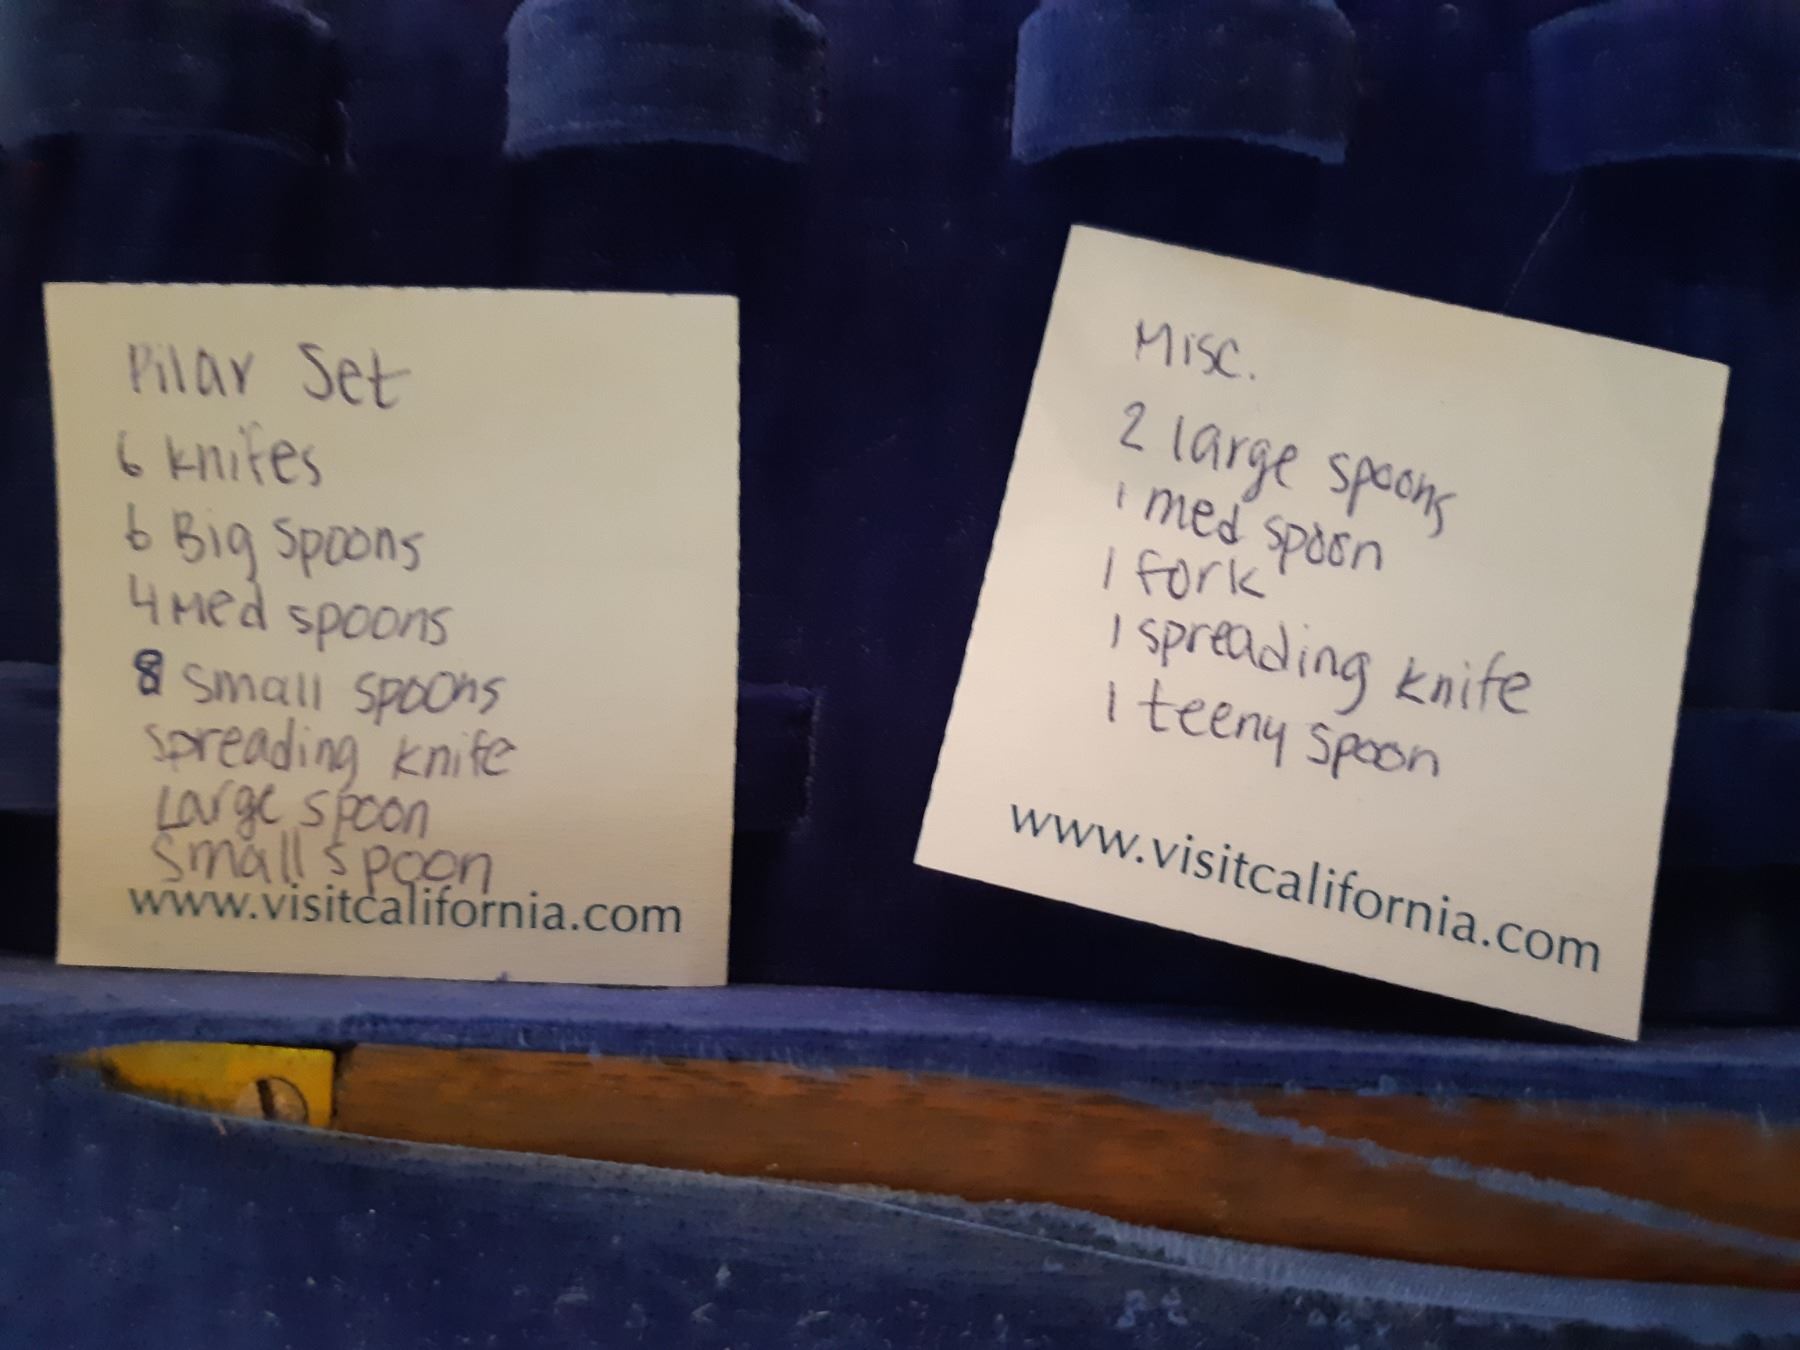 Pilar Set
6 knifes
6 Big spoons
4 Med spoons
8 small spoons
spreading knife
Large spoon
small spoon
www.visitcalifornia.com
Misc.
2 large spoons
1 med spoon
1 fork
1 spreading knife
1 teeny spoon
www.visitcalifornia.com